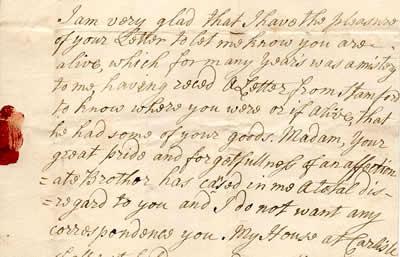 I am very glad that I have the pleasure
of your Letter to let me know you are
alive, which for many Years was a mistery
to me, having reced a Letter from Stamford
to know where you were or if alive, that
he had some of your goods. Madam, Your
great pride and forgetfullness of an affection
=ate Brother has cased in me a total dis=
=regard to you and I do not want any
correspondence you. My House at Carlisle